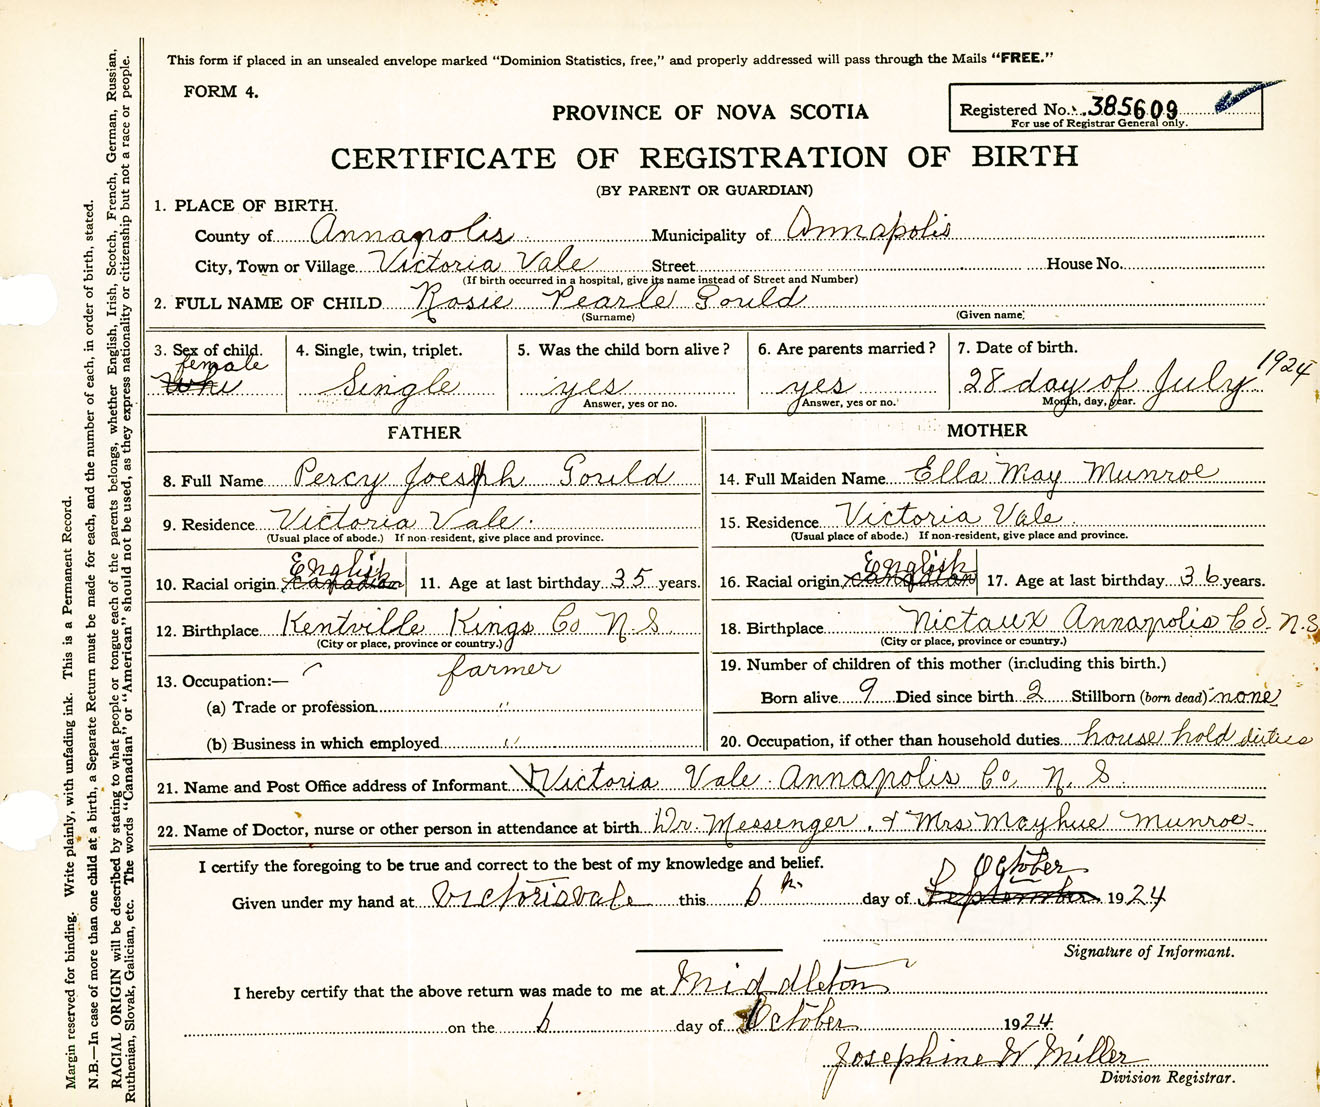 This form if placed in an unsealed envelope marked "Dominion Statistics, free," and properly addressed will pass through the Mails "FREE."
FORM 4.
Registered No. 385609
For use of Registrar General only.
PROVINCE OF NOVA SCOTIA
CERTIFICATE OF REGISTRATION OF BIRTH
(BY PARENT OR GUARDIAN)
1. PLACE OF BIRTH.
County of Annapolis Municipality of Annapolis
City, Town or Village Victoria Vale Street House No.
(If birth occurred in a hospital, give its name instead of Street and Number)
2. FULL NAME OF CHILD Rosie Pearle Gould
(Surname) (Given name)
3. Sex of child. female
4. Single, twin, triplet. Single
5. Was the child born alive? yes
Answer, yes or no.
6. Are parents married? yes
Answer, yes or no.
7. Date of birth. 28 day of July 1924
Month, day, year.
FATHER
8. Full Name Percy Joesph Gould
9. Residence Victoria Vale.
(Usual place of abode.) If non-resident, give place and province.
10. Racial origin English Canadian 11. Age at last birthday 35 years.
12. Birthplace Kentville Kings Co N.S.
(City or place, province or country.)
13. Occupation:— farmer
(a) Trade or profession "
(b) Business in which employed "
MOTHER
14. Full Maiden Name Ella May Munroe
15. Residence Victoria Vale
(Usual place of abode.) If non-resident, give place and province.
16. Racial origin English Canadian 17. Age at last birthday 36 years.
18. Birthplace Nictaux Annapolis Co. N.S
(City or place, province or country.)
19. Number of children of this mother (including this birth.)
Born alive 9 Died since birth 2 Stillborn (born dead) none
20. Occupation, if other than household duties house hold duties
21. Name and Post Office address of Informant Victoria Vale Annapolis Co N.S.
22. Name of Doctor, nurse or other person in attendance at birth Dr. Messenger. & Mrs Mayhue Munroe.
I certify the foregoing to be true and correct to the best of my knowledge and belief.
Given under my hand at Victoriavale this 6th day of September October 1924
Signature of Informant.
I hereby certify that the above return was made to me at Middleton
on the 6 day of October 1924
Josephine W Miller
Division Registrar.
Margin reserved for binding. Write plainly, with unfading ink. This is a Permanent Record.
N.B.—In case of more than one child at a birth, a Separate Return must be made for each, and the number of each, in order of birth, stated.
RACIAL ORIGIN will be described by stating to what people or tongue each of the parents belongs, whether English, Irish, Scotch, French, German, Russian,
Ruthenian, Slovak, Galician, etc. The words "Canadian" or "American" should not be used, as they express nationality or citizenship but not a race or people.